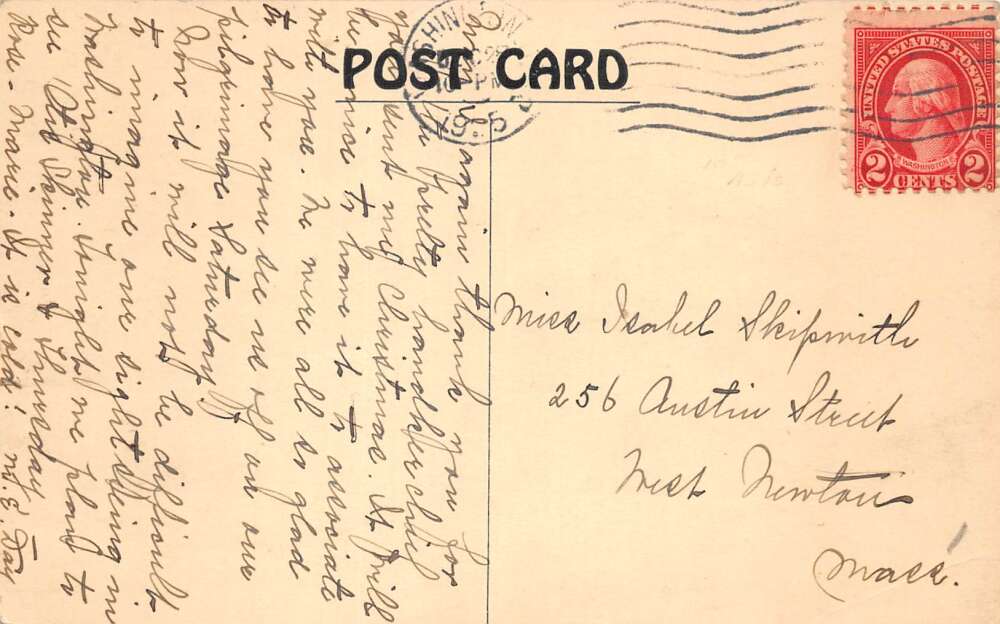 POST CARD
UNITED STATES POSTAGE
WASHINGTON
2 CENTS 2
again thank you for
the pretty handkerchief
you sent me Christmas. It will
be nice to have it to associate
with you. We were all so glad
to have you see us off on our
pilgrimage Saturday.
Now it will not be difficult
to imagine our sight seeing in
Washington. Tonight we plan to
see Otis Skinner & Thursday
Rose-Marie. It is cold! M. E. Day
Miss Isabel Skipwith
256 Austin Street
West Newton
Mass.